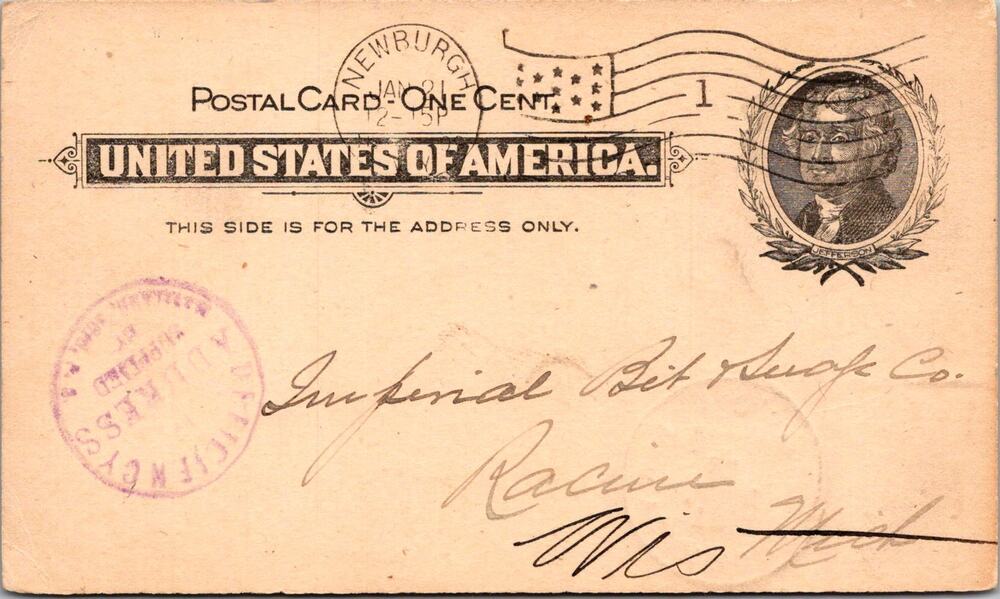 NEWBURGH
JAN 21
12-15P
1
POSTAL CARD - ONE CENT.
UNITED STATES OF AMERICA.
JEFFERSON
THIS SIDE IS FOR THE ADDRESS ONLY.
DEFICIENCY
ADDRESS
SUPPLIED
BY
Imperial Bit & Snap Co.
Racine
Wis Mich